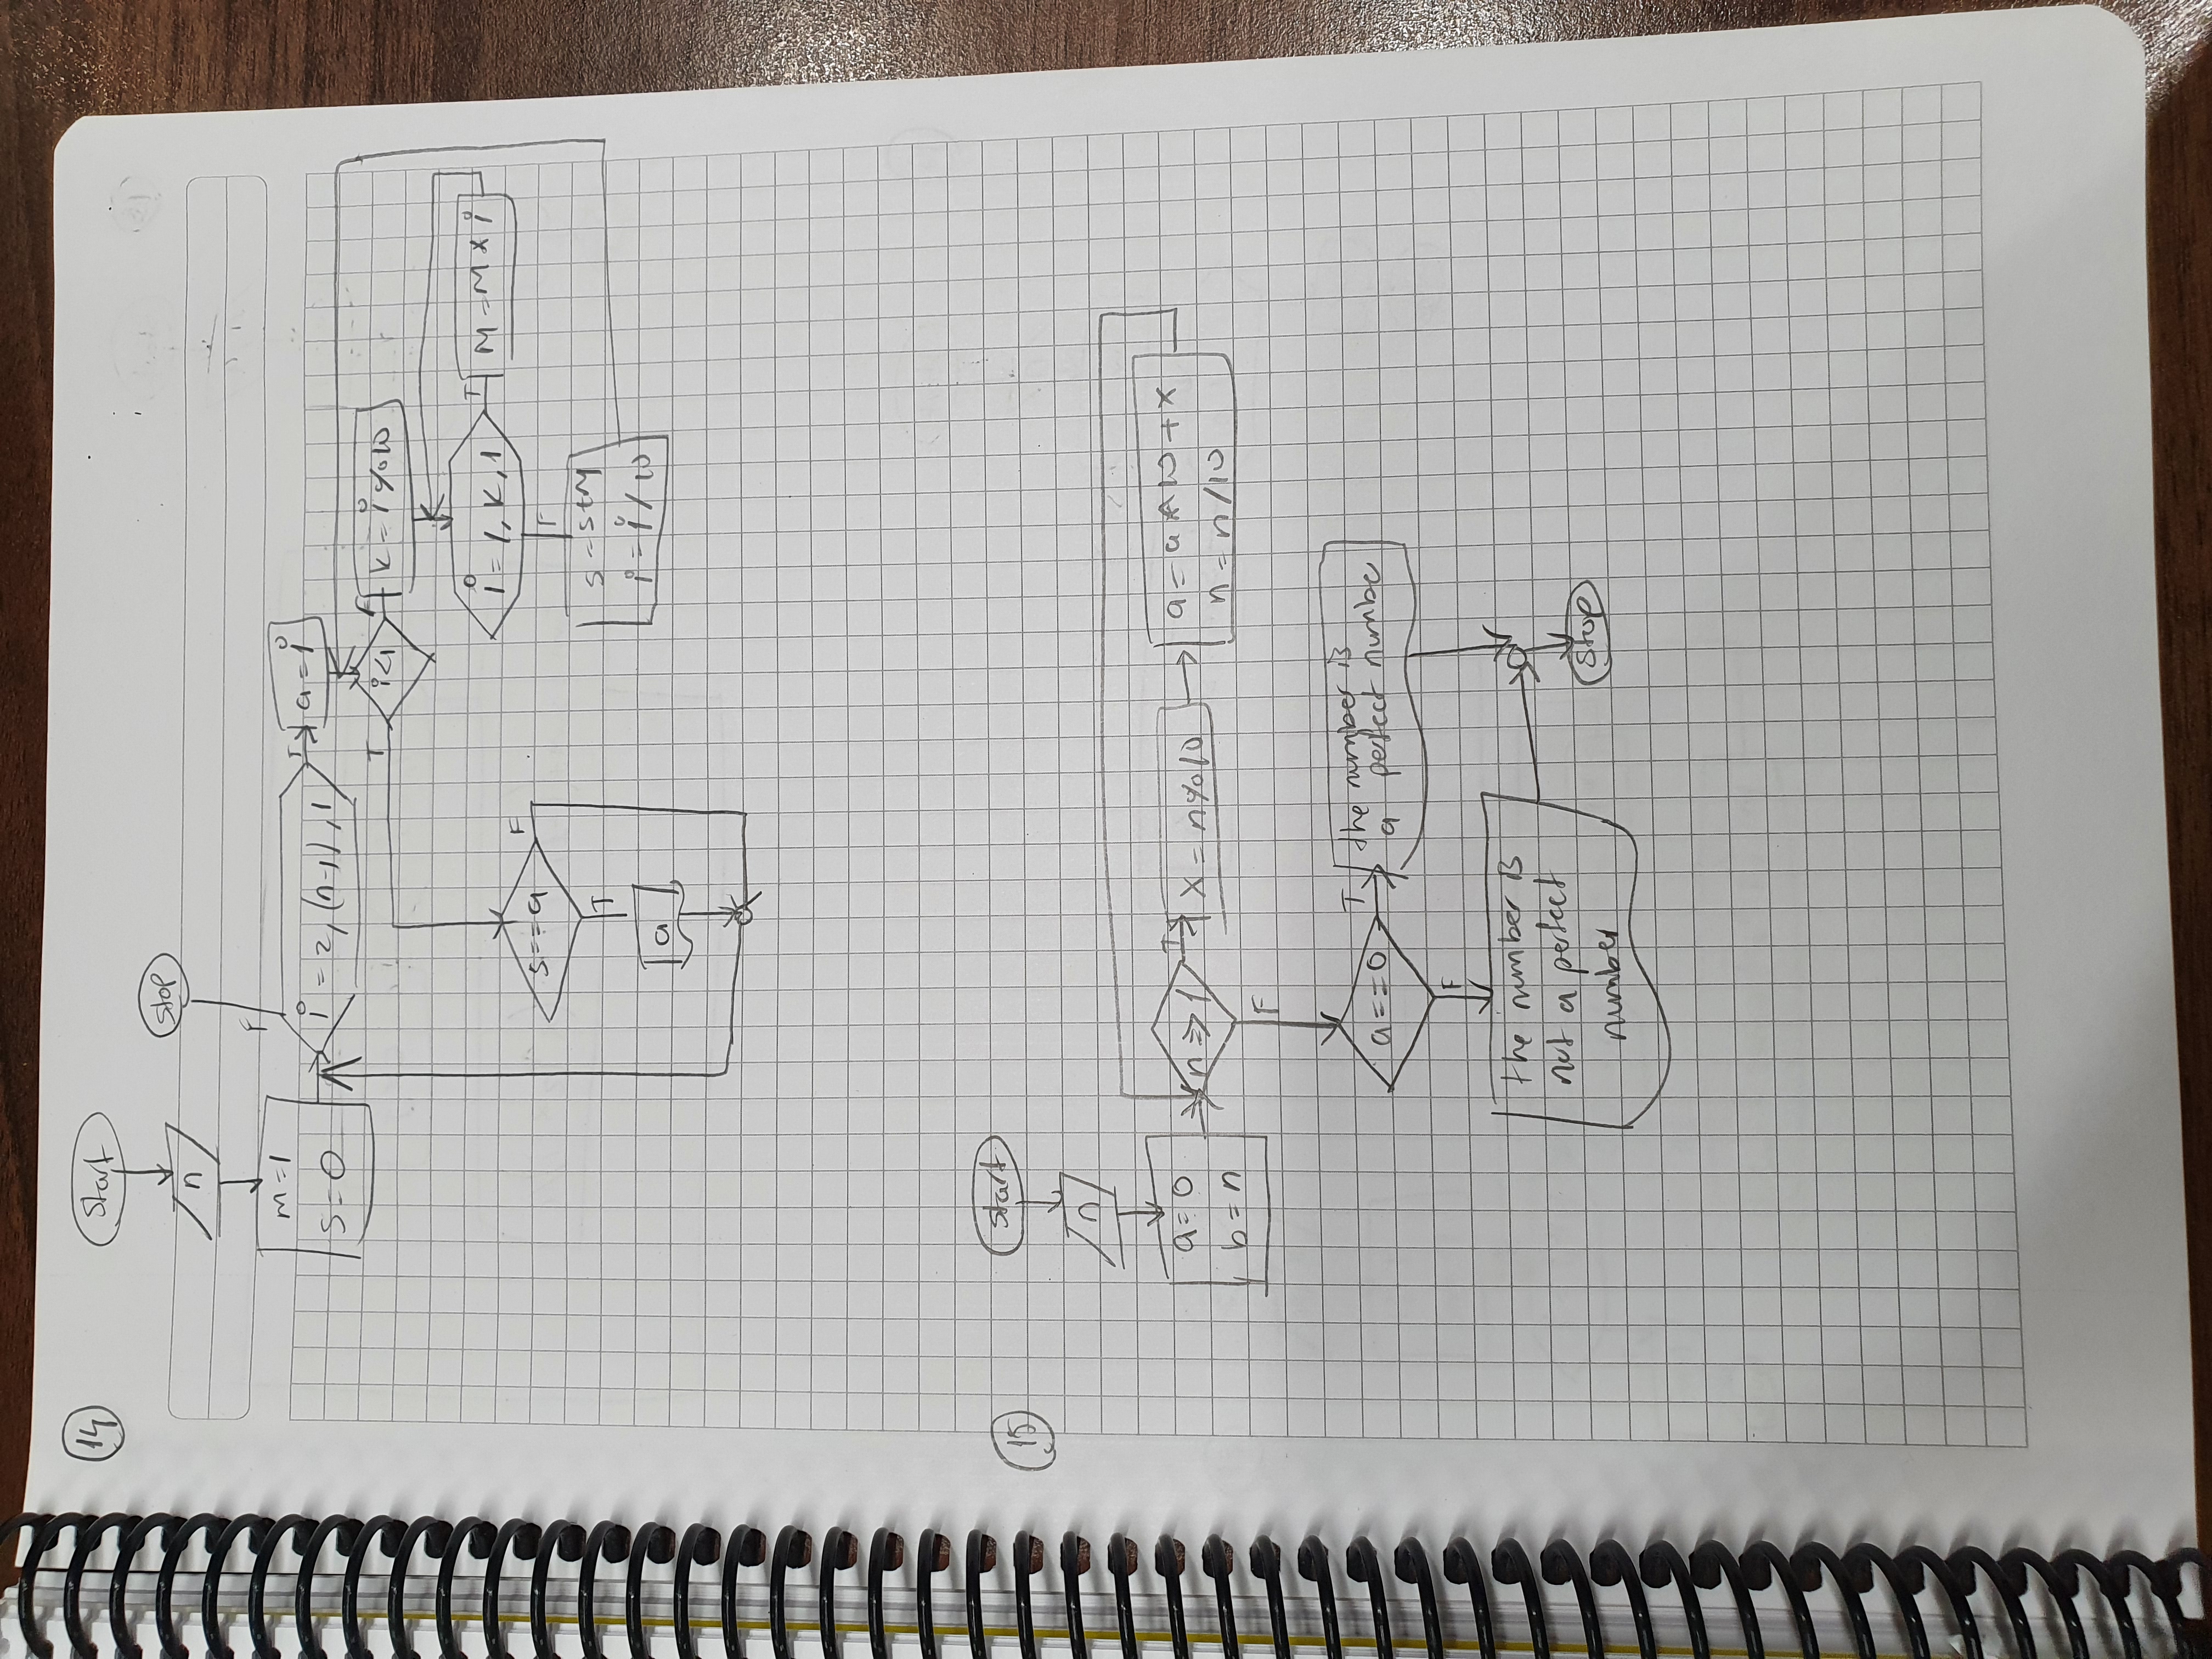 14
Start
n
m=1
s=0
Stop
F
i = 2, (n-1), 1
T
a = i
i<1
T
F
k = i%10
i = 1, k, 1
T
M = M x i
F
s = s+M
i = i/10
s==a
F
T
a
15
Start
n
a=0
b=n
n>=1
T
x = n%10
a = a*10+x
n = n/10
F
a==0
T
the number is
a perfect numbe
F
the number is
not a perfect
number
Stop